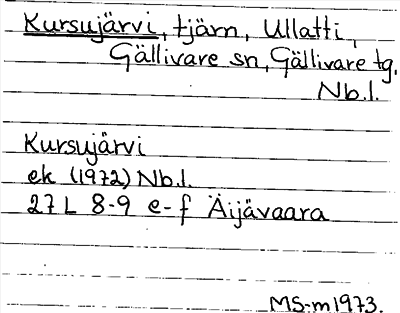 Kursujärvi, tjärn, Ullatti,
Gällivare sn, Gällivare tg.
Nb.l.
Kursujärvi
ek (1972) Nb.l.
27 L 8-9 e-f Äijävaara
MS-m 1973.